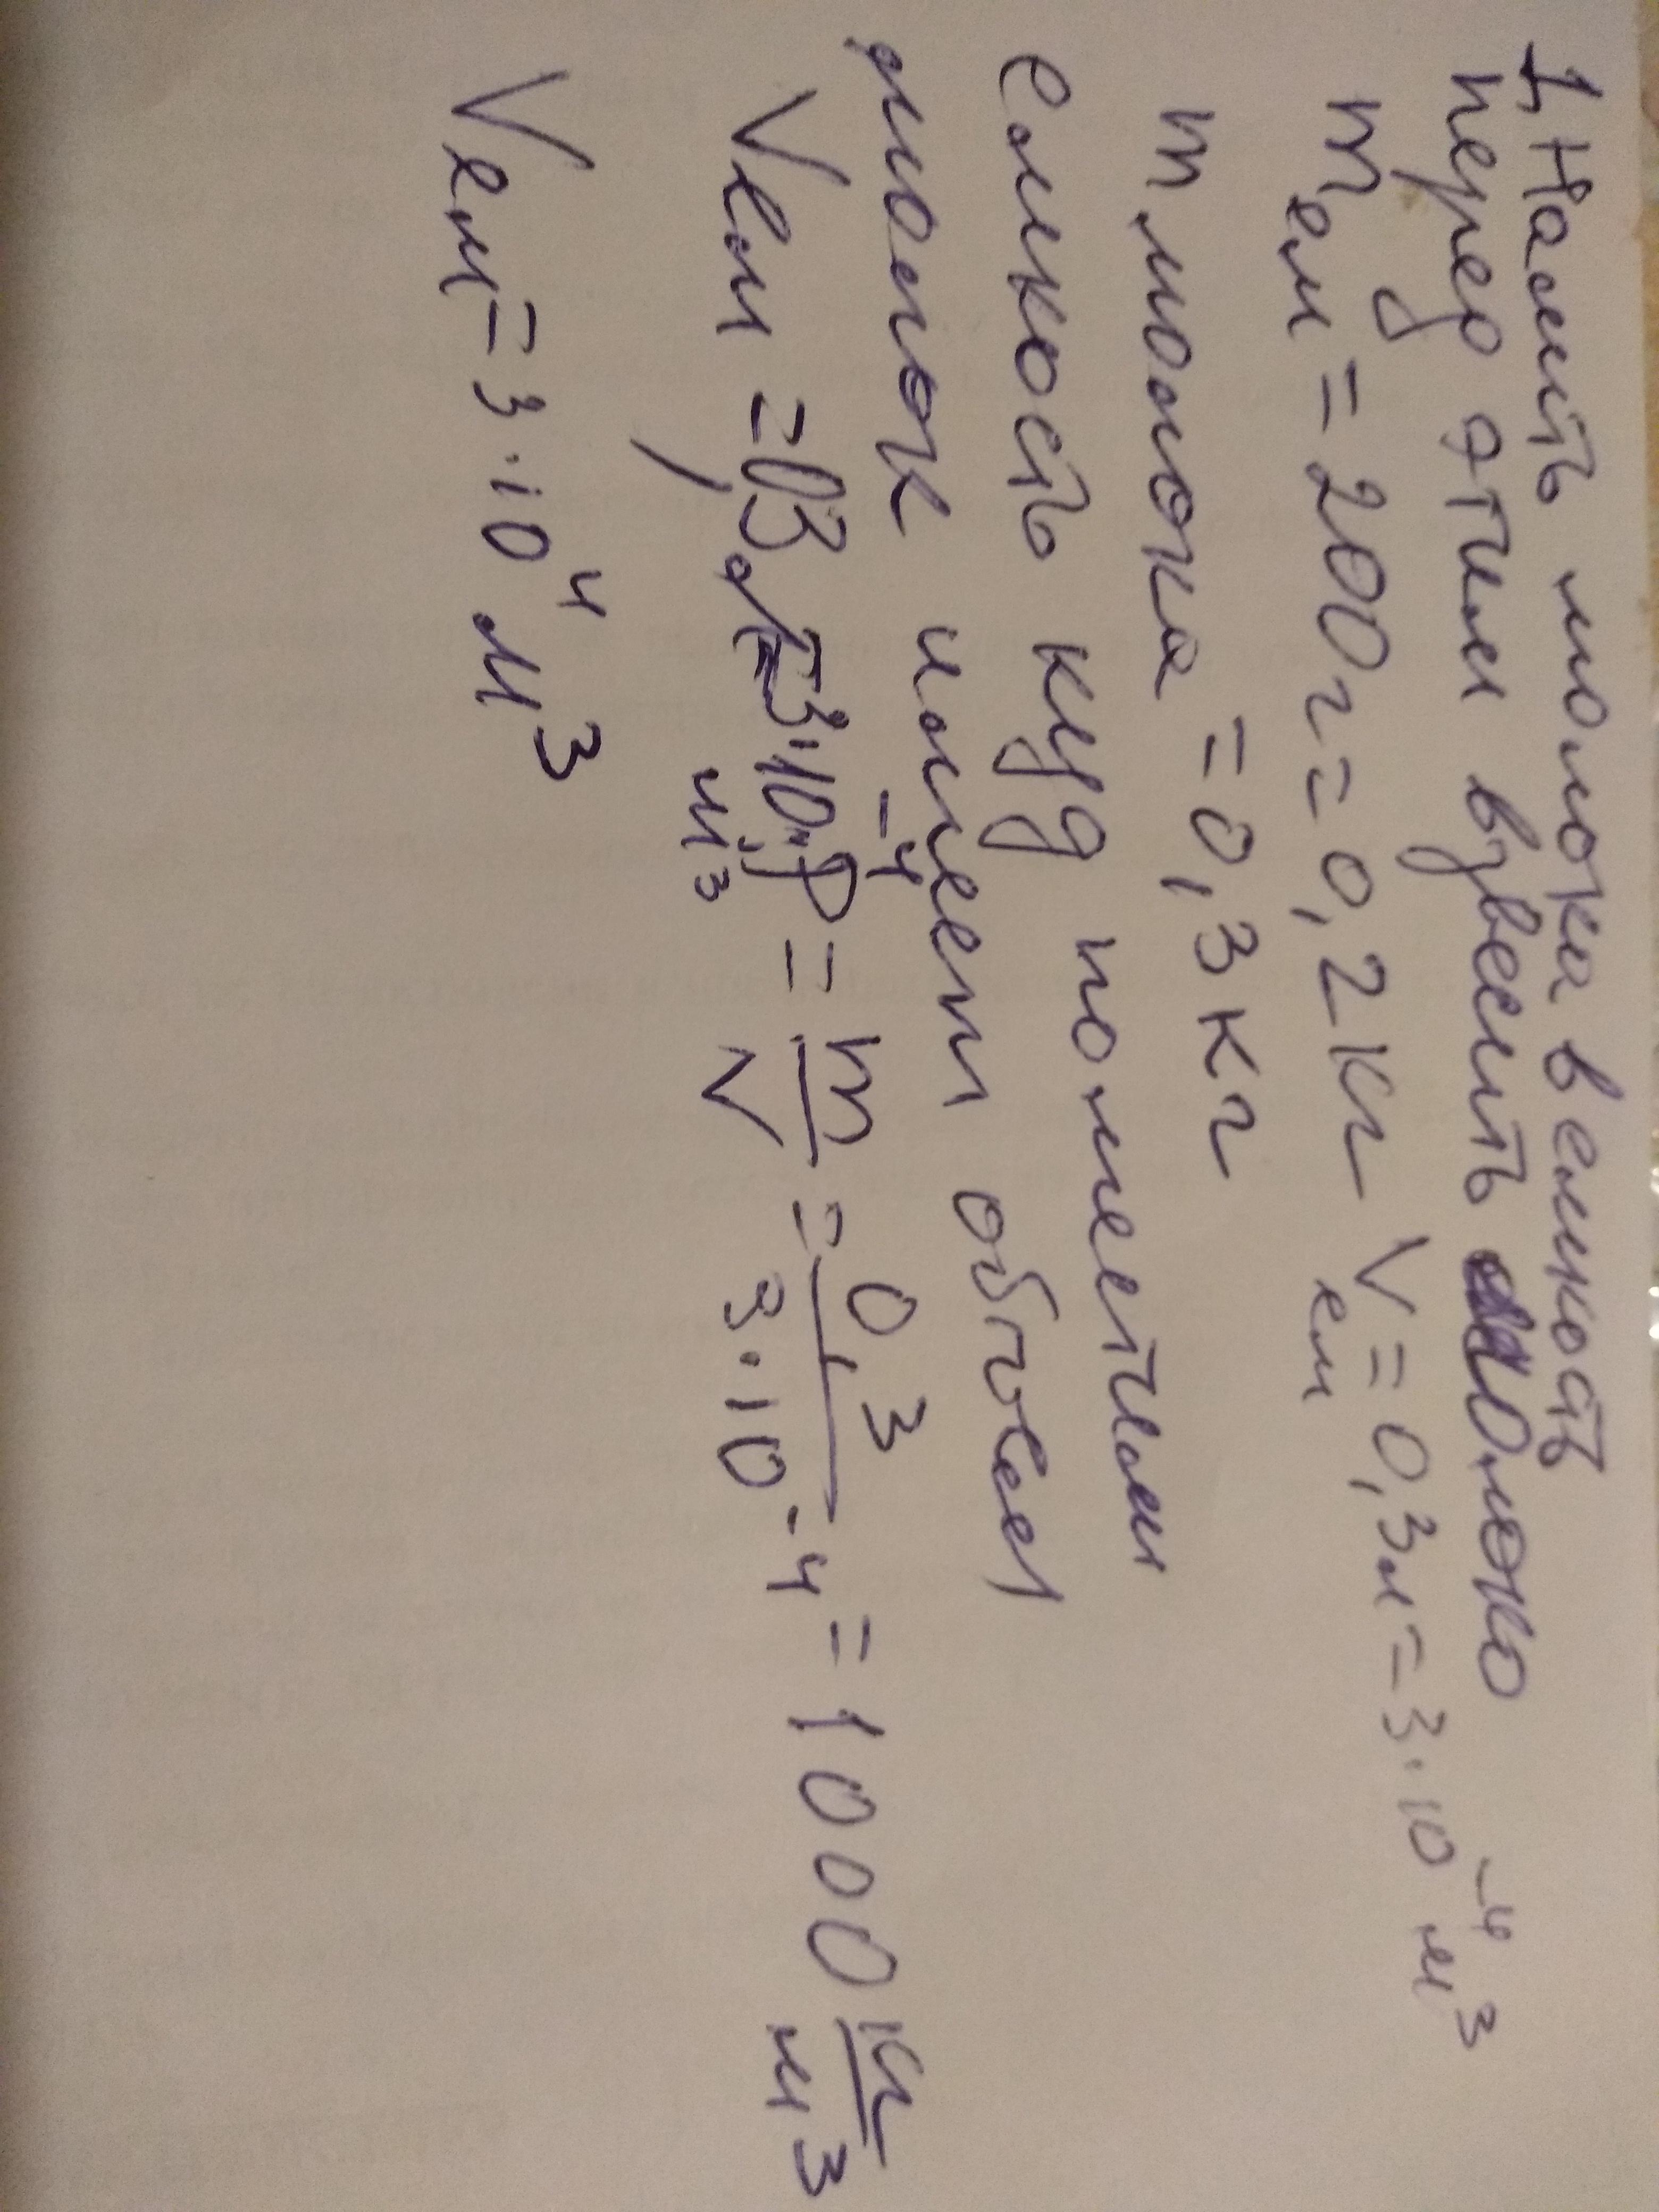 1, Налить молока в емкость
перед этим взвесить молоко
m ем = 200 г = 0,2 кг V ем = 0,3 л = 3·10⁻⁴ м³
m молока = 0,3 кг
емкость куд поместим
молок имеет объем
V ем = 0,3 л = 3·10⁻⁴ м³, ρ = m/V = 0,3/3·10⁻⁴ = 1000 кг/м³
V ем = 3·10⁴ м³